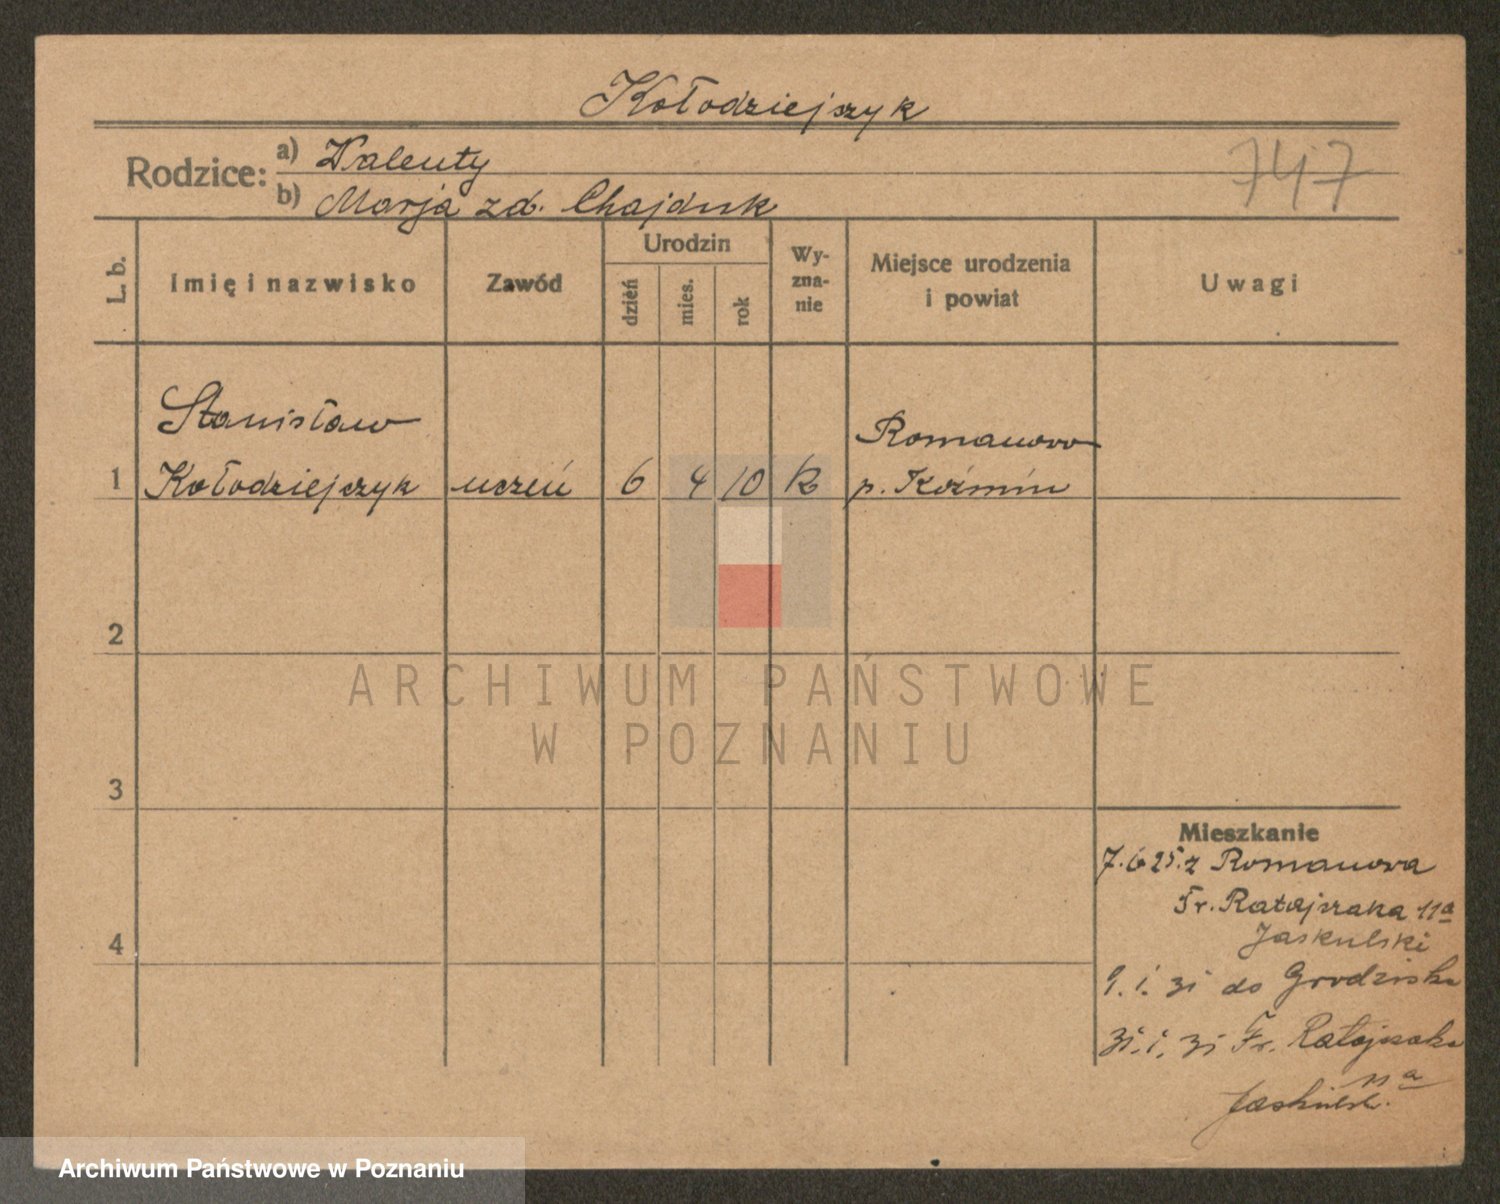 Kołodziejczyk
Rodzice: a) Walenty
b) Marja zd. Chajduk
747
L. b.
Imię i nazwisko
Zawód
Urodzin
dzień
mies.
rok
Wy-
zna-
nie
Miejsce urodzenia
i powiat
Uwagi
Stanisław
Romanowo
1 Kołodziejczyk uczeń 6 4 10 k p. Koźmin
2
ARCHIWUM PAŃSTWOWE
W POZNANIU
3
Mieszkanie
7.6 25. z Romanowa
Fr. Ratajszaka 11a
4
Jaskulski
9. i. 31 do Grodziska
31. i. 31 Fr. Ratajszaka
11a
Jaskulski
Archiwum Państwowe w Poznaniu